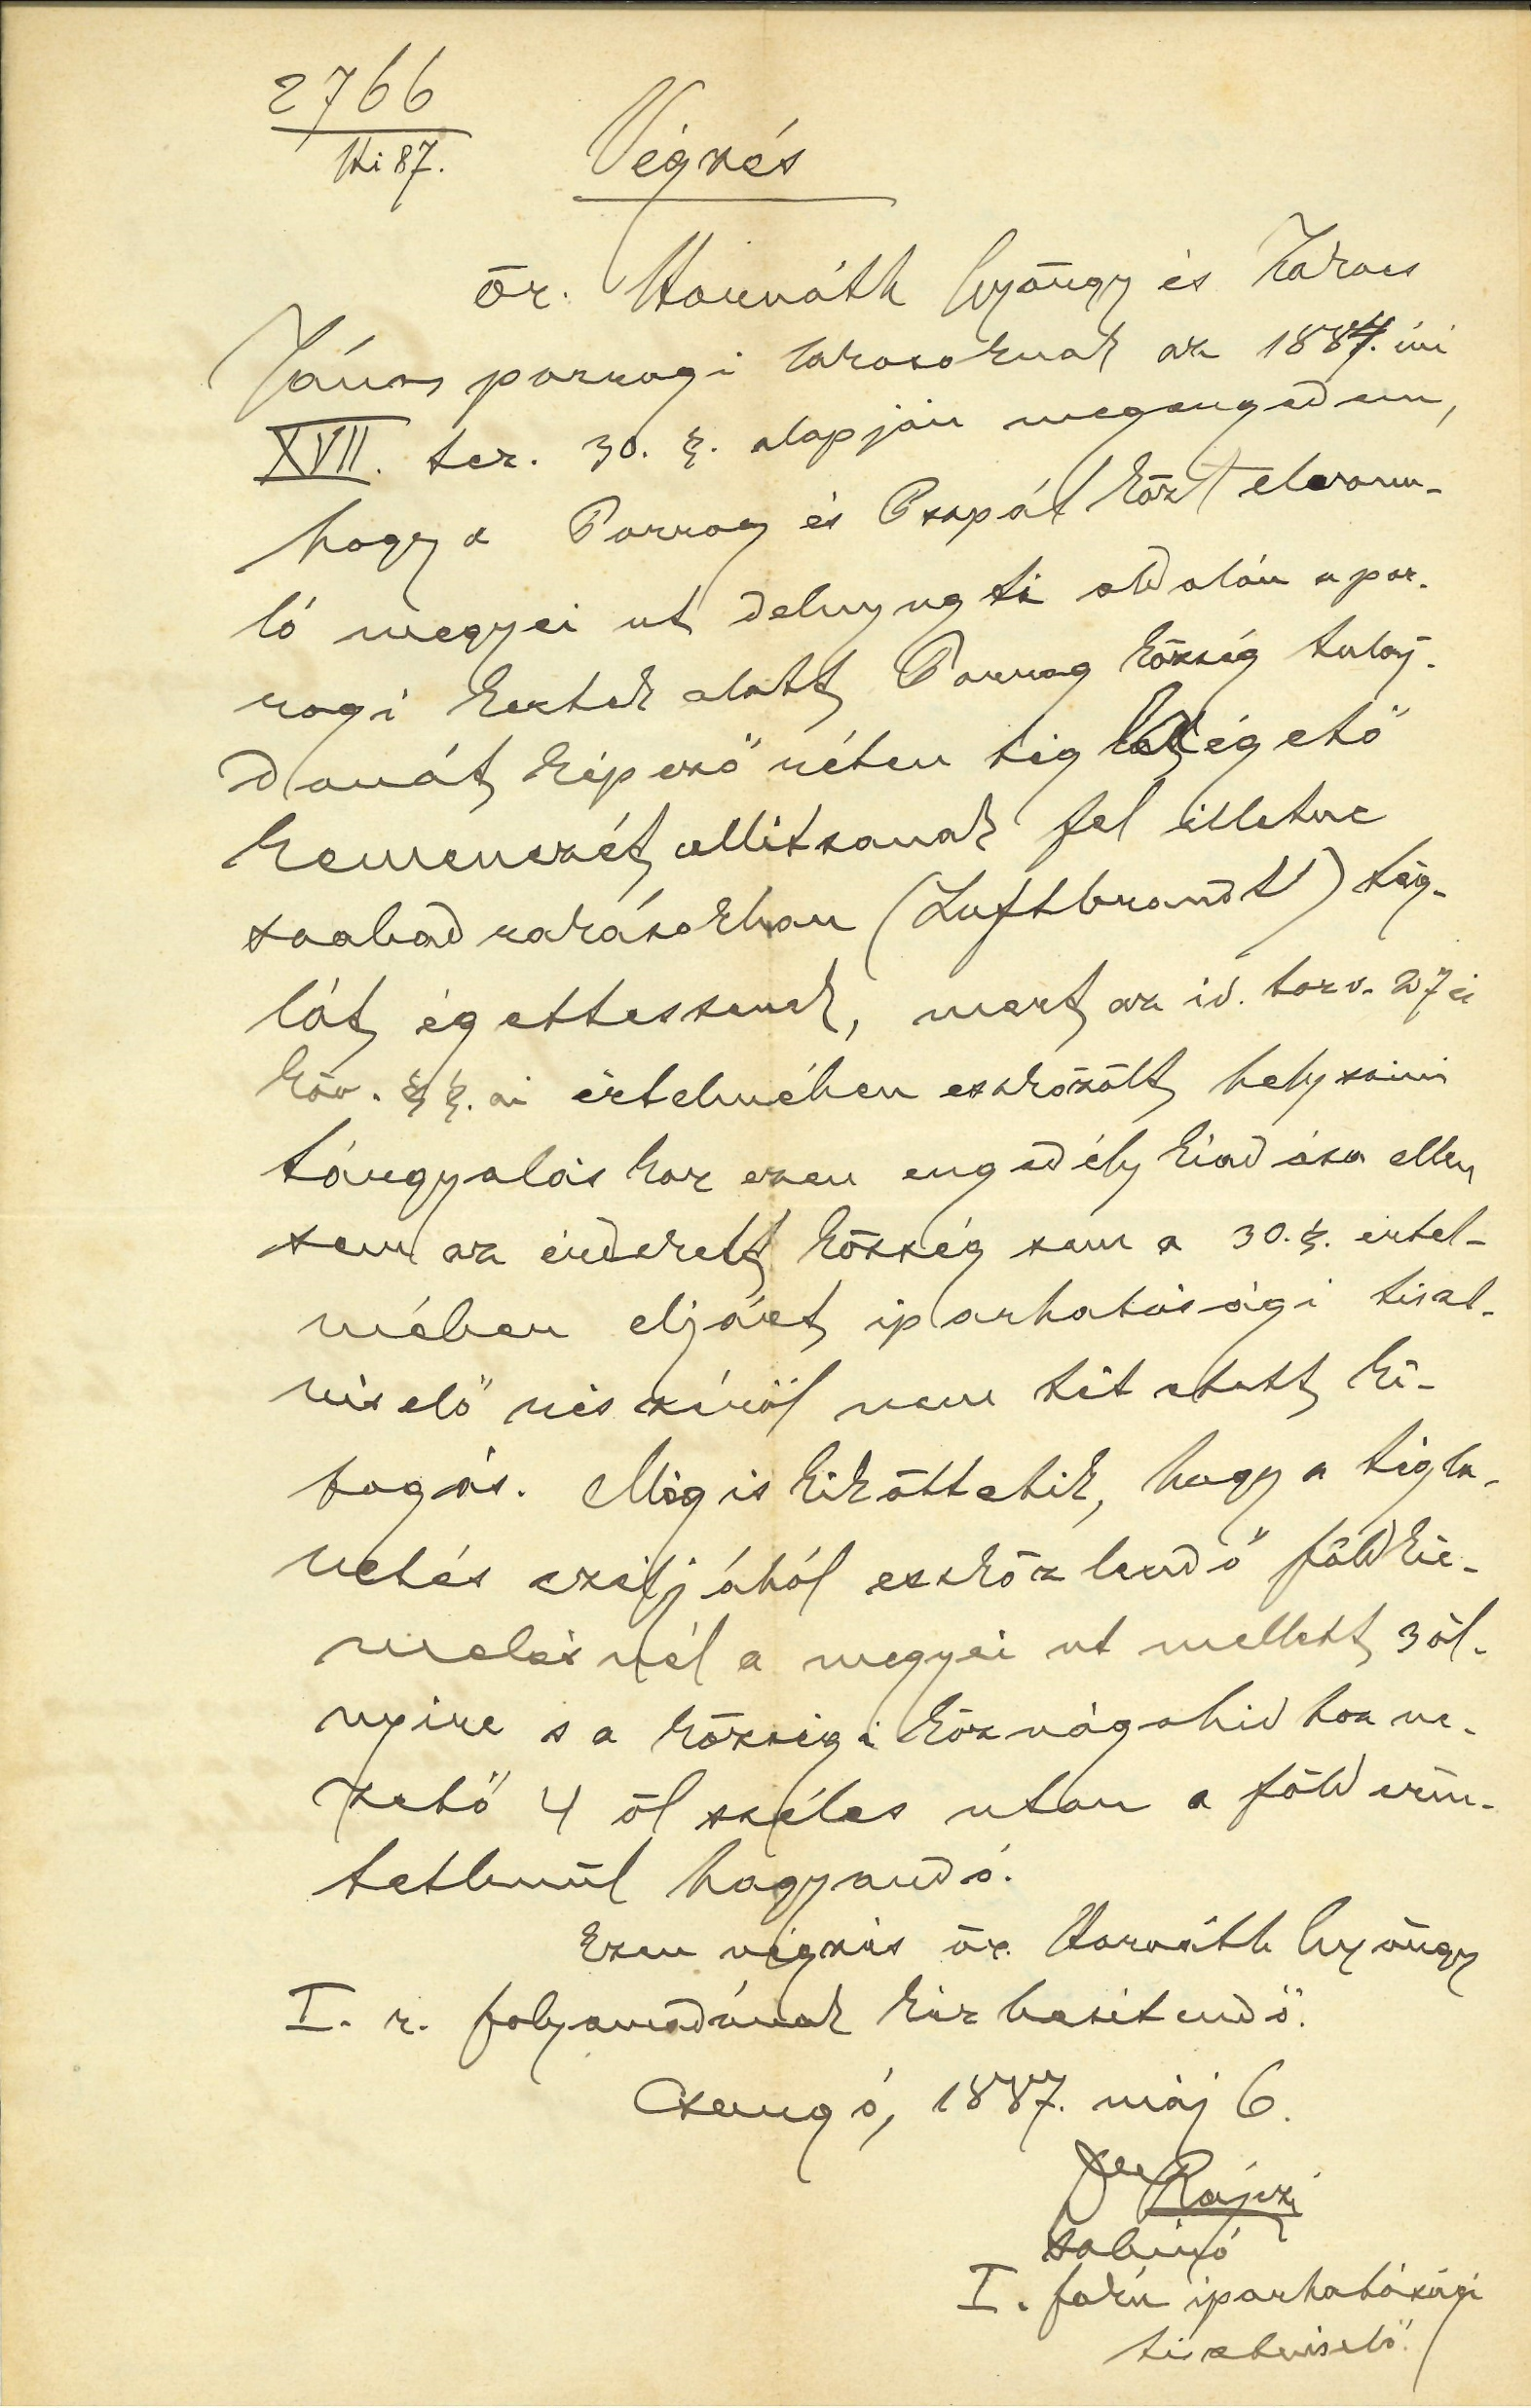 2766
Ki 87.
Végzés
Őz. Horváth György és Takács
János porrogi lakosoknak az 1884. évi
XVII. tcz. 30. §. alapján megengedem,
hogy a Porrog és Pszpál közt elvonu-
ló megyei ut délnyugti oldalán a por-
rogi kertek alatt Porrog község tulaj-
donát képező réten tégla égető
kemenczét állitsanak fel illetve
szabad rakásokban (Luftbrandt) tég-
lát égettessenek, mert az id. törv. 27 és
köv. §§. ai értelmében eszközölt helyszini
tárgyaláskor ezen engedély kiadása ellen
sem az érdekelt község sem a 30. §. értel-
mében eljárt iparhatósági tiszt-
viselő részéről nem tétetett ki-
fogás. Mégis kiköttetik, hogy a tégla-
vetés czéljából eszközlendő földkie-
melésnél a megyei ut mellett 3 öl-
nyire s a községi közvágohidhoz ve-
zető 4 öl széles utan a föld érin-
tetlenül hagyandó.
Ezen végzés öz. Horváth György
I. r. folyamodónak kézbesitendő.
Csurgó, 1887. máj 6.
szbiró
I. fokú iparhatósági
tisztviselő.